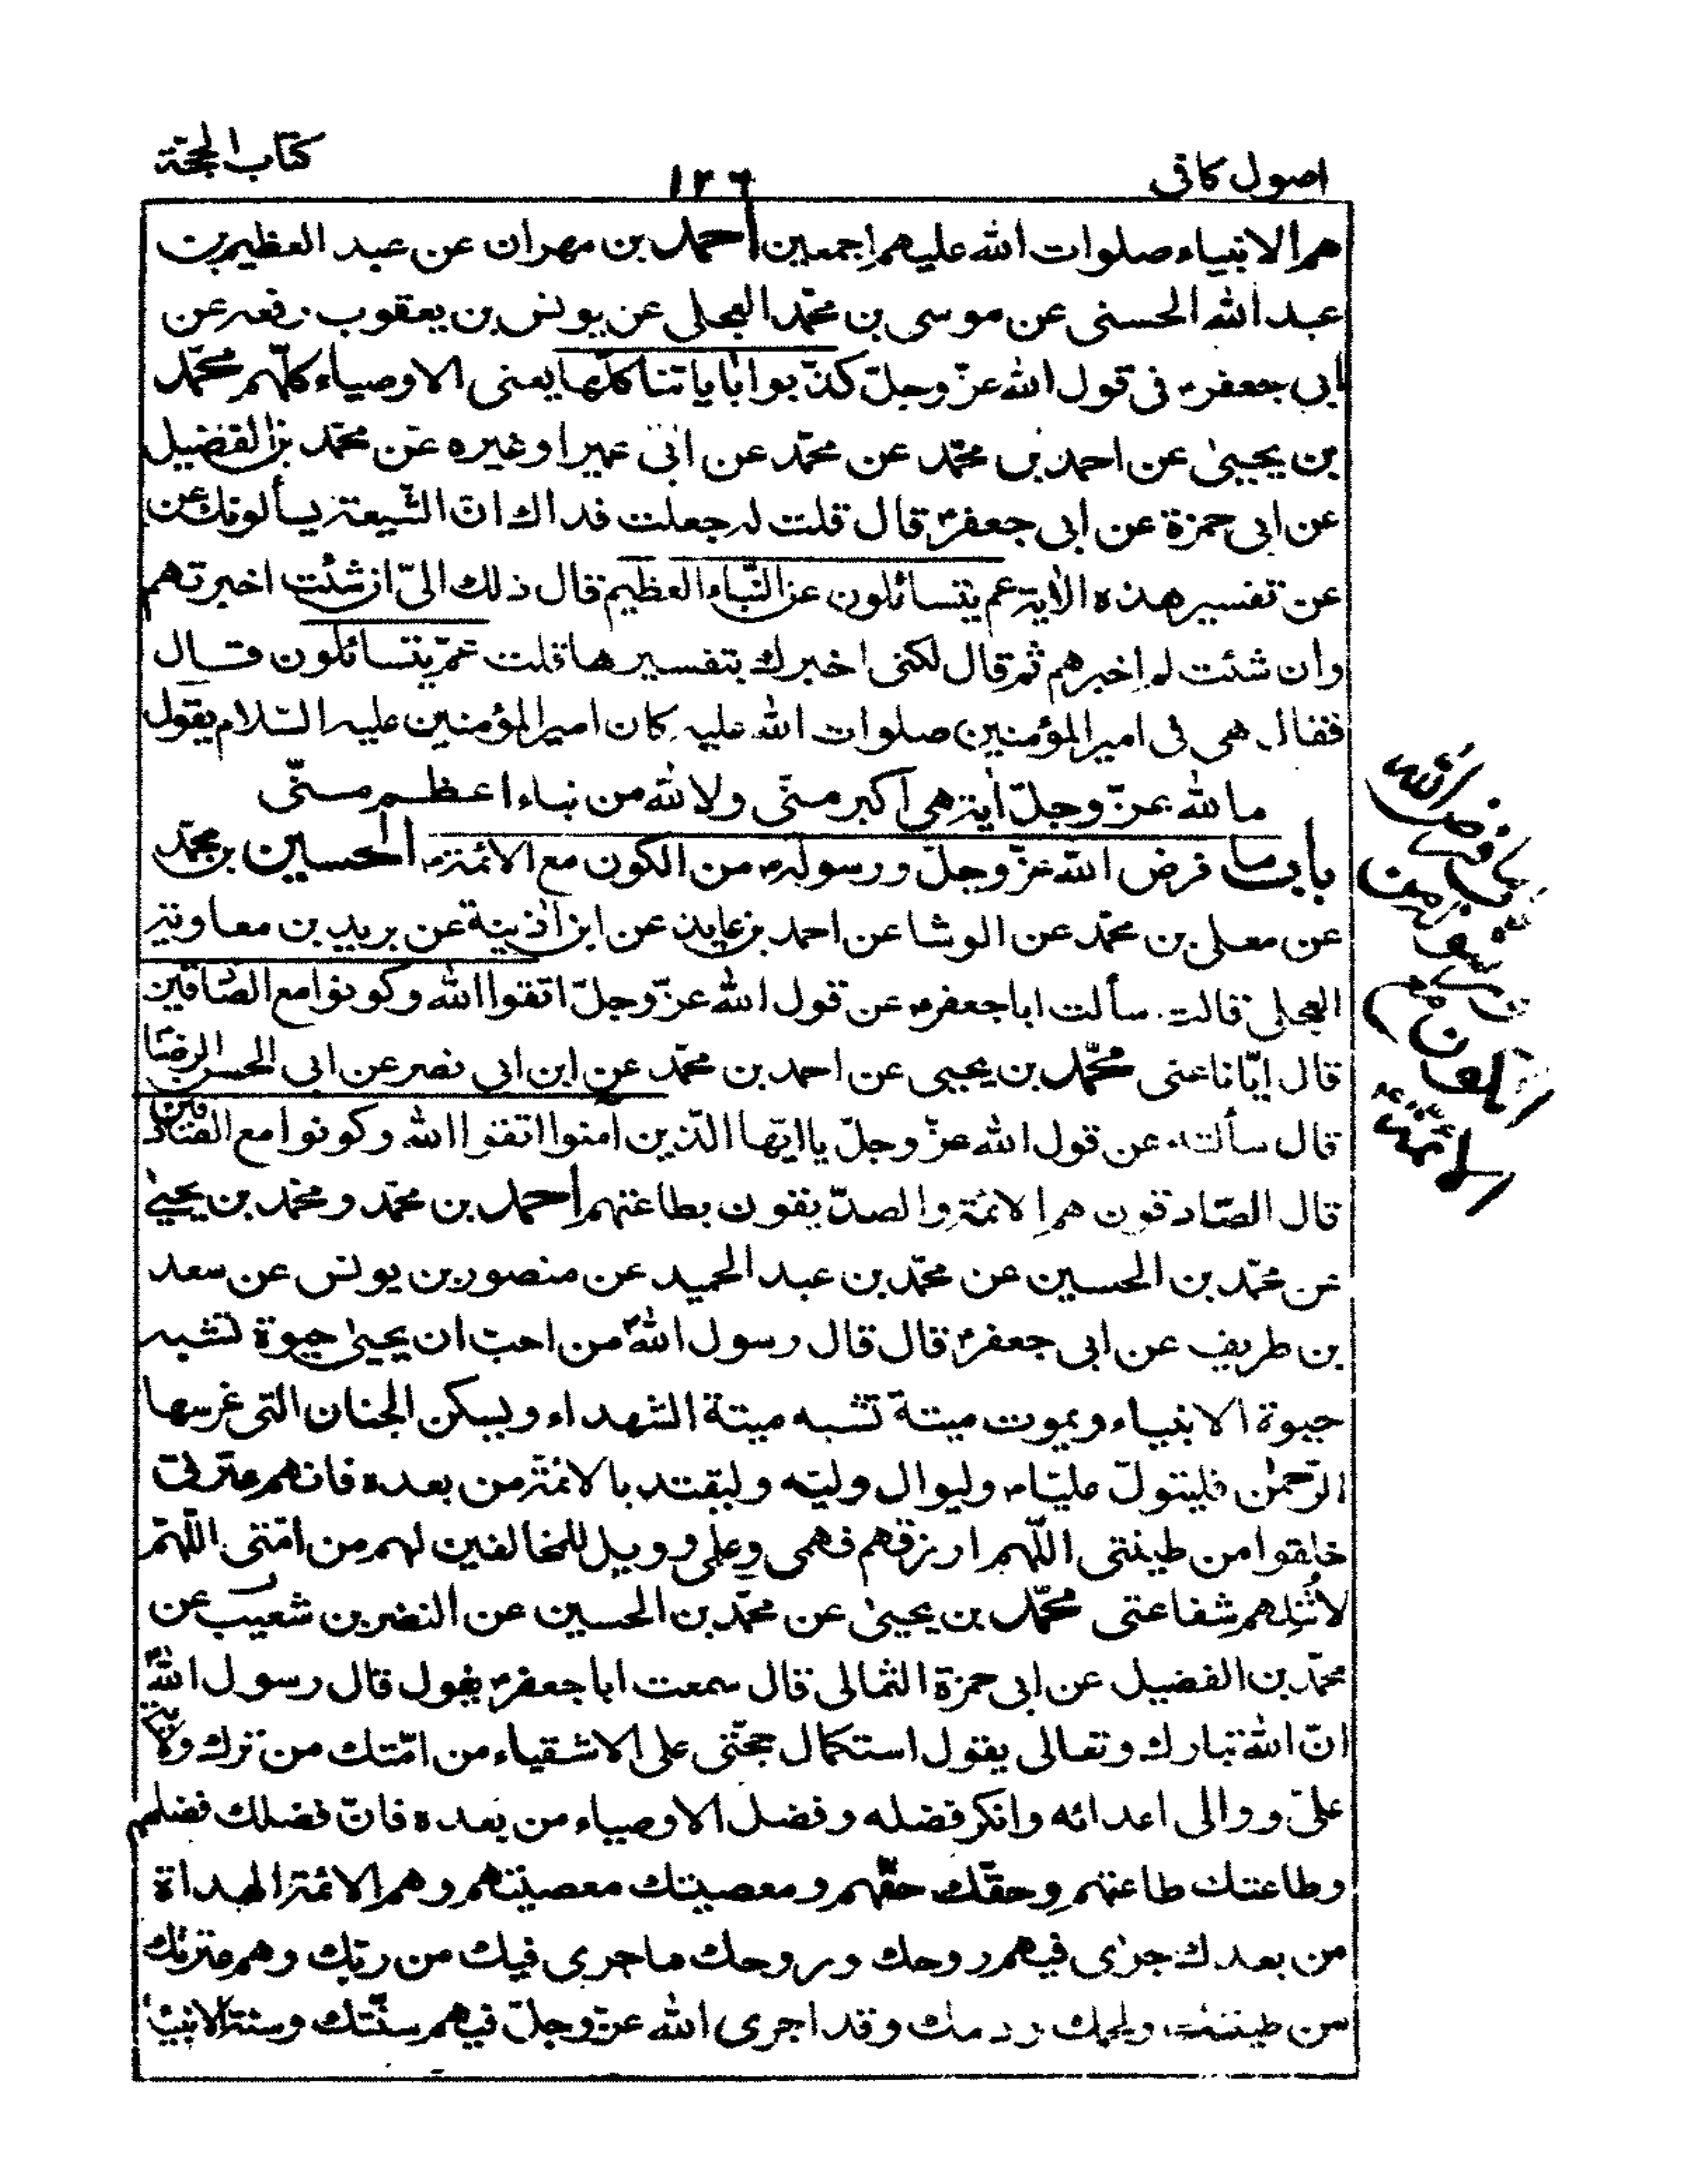 اصول كافى ١٢٦ كتاب الحجّة
هم الانبياء صلوات الله عليهم اجمعين احمد بن مهران عن عبد العظيم بن
عبد الله الحسنى عن موسى بن محمّد العجلى عن يونس بن يعقوب رفعه عن
ابى جعفرء فى قول الله عزّ وجلّ كذّبوا باٰياتنا كلّها يعنى الاوصياء كلّهم محمّد
بن يحيىٰ عن احمد بن محمّد عن محمّد عن ابى عمير او غيره عن محمّد بن الفضيل
عن ابى حمزة عن ابى جعفرء قال قلت له جعلت فداك انّ الشّيعة يسألونك عن
عن تفسير هذه الاٰية عم يتسائلون عن النّباء العظيم قال ذلك الىّ ان شئت اخبرتهم
وان شئت لم اخبرهم ثم قال لكنى اخبرك بتفسيرها قلت عمّ يتسائلون قال
فقال هى فى امير المؤمنين صلوات الله عليه كان امير المؤمنين عليه السّلام يقول
ما لله عزّ وجلّ اٰية هى اكبر منّى ولا لله من نباء اعظم منّى
باب ما فرض الله عزّ وجلّ ورسولهء من الكون مع الائمّةء الحسين بن محمّد
عن معلى بن محمّد عن الوشا عن احمد بن عايذ عن ابن اذينة عن بريد بن معاوية
العجلى قال سألت ابا جعفرء عن قول الله عزّ وجلّ اتقوا الله وكونوا مع الصّادقين
قال ايّانا عنى محمّد بن يحيى عن احمد بن محمّد عن ابن ابى نصر عن ابى الحسن الرضا
قال سألته عن قول الله عزّ وجلّ يا ايّها الّذين اٰمنوا اتقوا الله وكونوا مع الصّادقين
قال الصّادقون هم الائمّة والصدّيقون بطاعتهم احمد بن محمّد ومحمّد بن يحيىٰ
عن محمّد بن الحسين عن محمّد بن عبد الحميد عن منصور بن يونس عن سعد
بن طريف عن ابى جعفرء قال قال رسول اللهص من احبّ ان يحيىٰ حيوة تشبه
حيوة الانبياء ويموت ميتة تشبه ميتة الشهداء ويسكن الجنان التى غرسها
الرّحمٰن فليتولّ عليّاء وليوال وليّه وليقتد بالائمّة من بعده فانهم عترتى
خلقوا من طينتى اللّهم ارزقهم فهمى وعلمى وويل للمخالفين لهم من امّتى اللّهمّ
لا تُنِلهم شفاعتى محمّد بن يحيىٰ عن محمّد بن الحسين عن النضر بن شعيب عن
محمّد بن الفضيل عن ابى حمزة الثمالى قال سمعت ابا جعفرء يقول قال رسول اللهص
انّ الله تبارك وتعالى يقول استكمال حجّتى على الاشقياء من امّتك من ترك ولاية
علىّ ووالى اعدائه وانكر فضله وفضل الاوصياء من بعده فانّ فضلك فضلهم
وطاعتك طاعتهم وحقّك حقّهم ومعصيتك معصيتهم وهم الائمّة الهداة
من بعدك جرٰى فيهم روحك وروحك ما جرى فيك من ربّك وهم عترتك
من طينتك ولحمك ودمك وقد اجرى الله عزّ وجلّ فيهم سنّتك وسنّة الانبياء